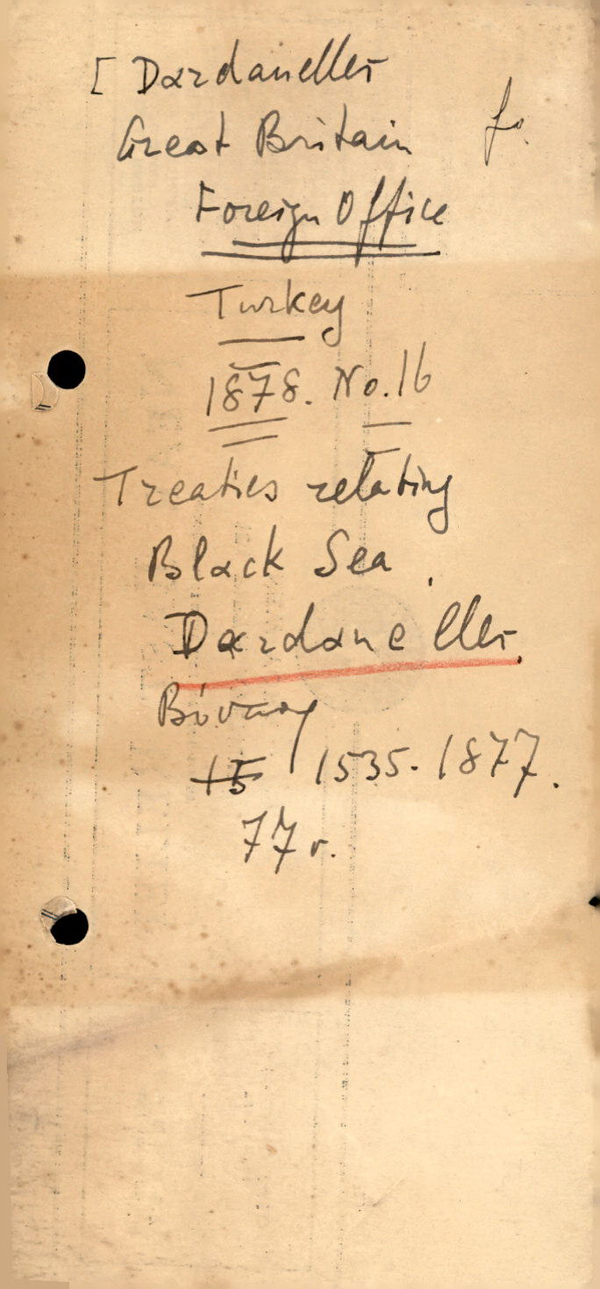 [ Dardanelles
Great Britain fo.
Foreign Office
Turkey
1878. No. 16
Treaties relating
Black Sea.
Dardanelles
15 1535-1877.
77 v.